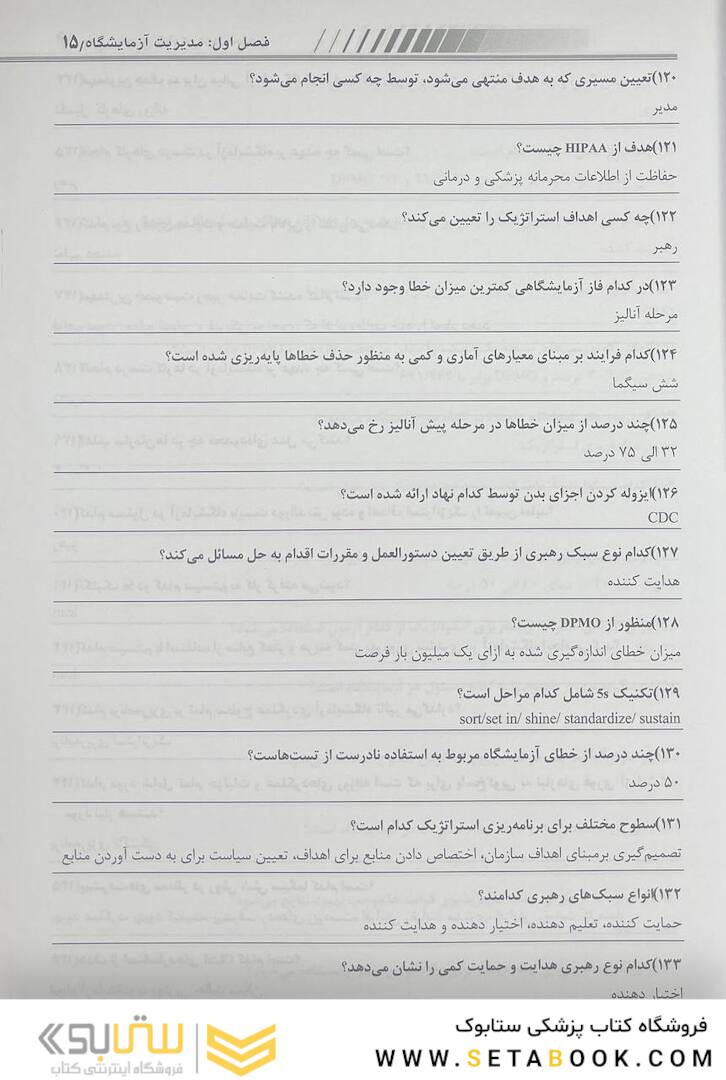 فصل اول: مدیریت آزمایشگاه/ ۱۵
۱۲۰)تعیین مسیری که به هدف منتهی می‌شود، توسط چه کسی انجام می‌شود؟
مدیر
۱۲۱)هدف از HIPAA چیست؟
حفاظت از اطلاعات محرمانه پزشکی و درمانی
۱۲۲)چه کسی اهداف استراتژیک را تعیین می‌کند؟
رهبر
۱۲۳)در کدام فاز آزمایشگاهی کمترین میزان خطا وجود دارد؟
مرحله آنالیز
۱۲۴)کدام فرایند بر مبنای معیارهای آماری و کمی به منظور حذف خطاها پایه‌ریزی شده است؟
شش سیگما
۱۲۵)چند درصد از میزان خطاها در مرحله پیش آنالیز رخ می‌دهد؟
۳۲ الی ۷۵ درصد
۱۲۶)ایزوله کردن اجزای بدن توسط کدام نهاد ارائه شده است؟
CDC
۱۲۷)کدام نوع سبک رهبری از طریق تعیین دستورالعمل و مقررات اقدام به حل مسائل می‌کند؟
هدایت کننده
۱۲۸)منظور از DPMO چیست؟
میزان خطای اندازه‌گیری شده به ازای یک میلیون بار فرصت
۱۲۹)تکنیک 5s شامل کدام مراحل است؟
sort/set in/ shine/ standardize/ sustain
۱۳۰)چند درصد از خطای آزمایشگاه مربوط به استفاده نادرست از تست‌هاست؟
۵۰ درصد
۱۳۱)سطوح مختلف برای برنامه‌ریزی استراتژیک کدام است؟
تصمیم‌گیری برمبنای اهداف سازمان، اختصاص دادن منابع برای اهداف، تعیین سیاست برای به دست آوردن منابع
۱۳۲)انواع سبک‌های رهبری کدامند؟
حمایت کننده، تعلیم دهنده، اختیار دهنده و هدایت کننده
۱۳۳)کدام نوع رهبری هدایت و حمایت کمی را نشان می‌دهد؟
اختیار دهنده
فروشگاه کتاب پزشکی ستابوک
WWW.SETABOOK.COM
ستابوک
فروشگاه اینترنتی کتاب